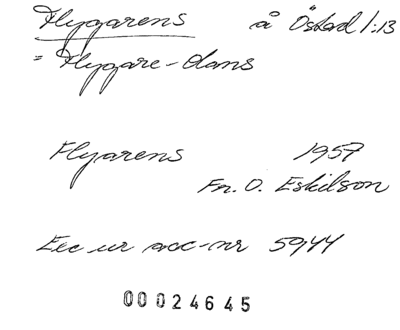 Flygarens å Östad 1:13
= Flygare-Olans
Flyarens 1957
Fn. O. Eskilson
Exc ur acc-nr 5944
00024645